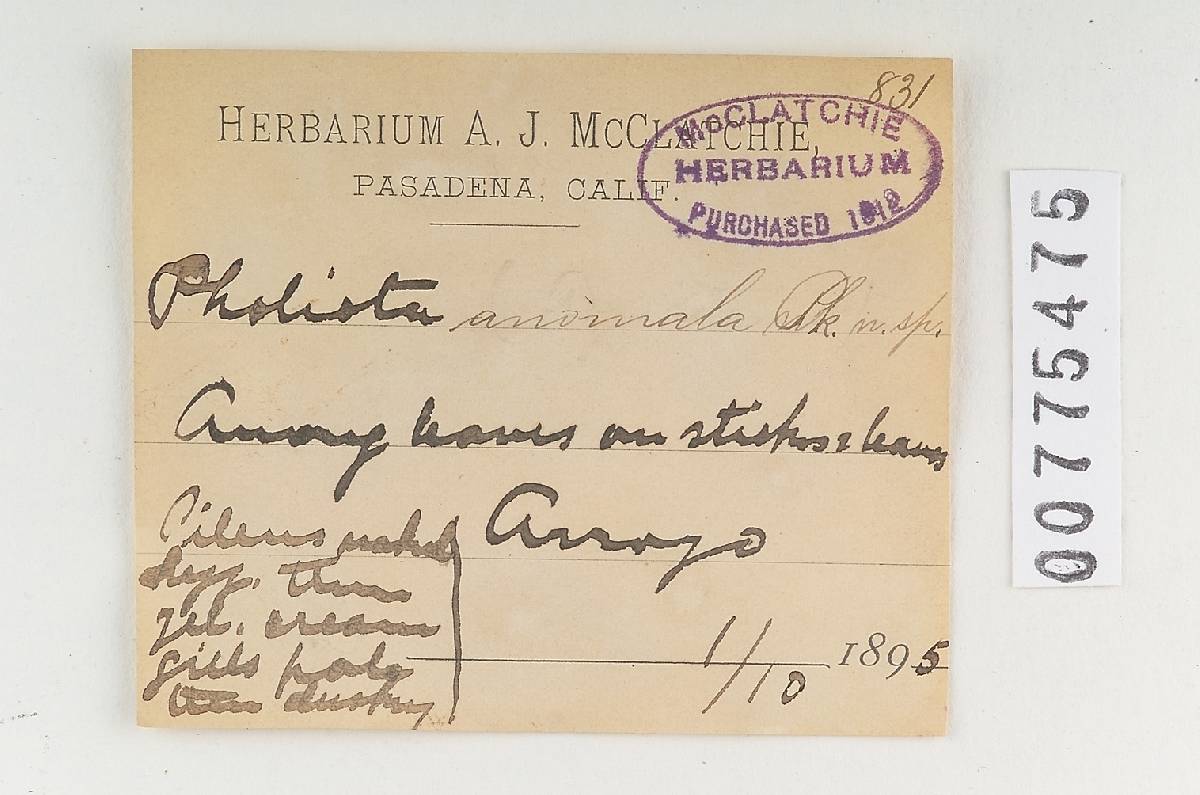 831
HERBARIUM A. J. MCCLATCHIE,
PASADENA, CALIF.
McCLATCHIE
HERBARIUM
PURCHASED 1912
Pholiota anomala Pk. n. sp.
Among leaves on sticks & leaves
Arroyo
Pileus naked
hyg. then
yel. cream
gills pale
then dusky
1/10 1895
00775475